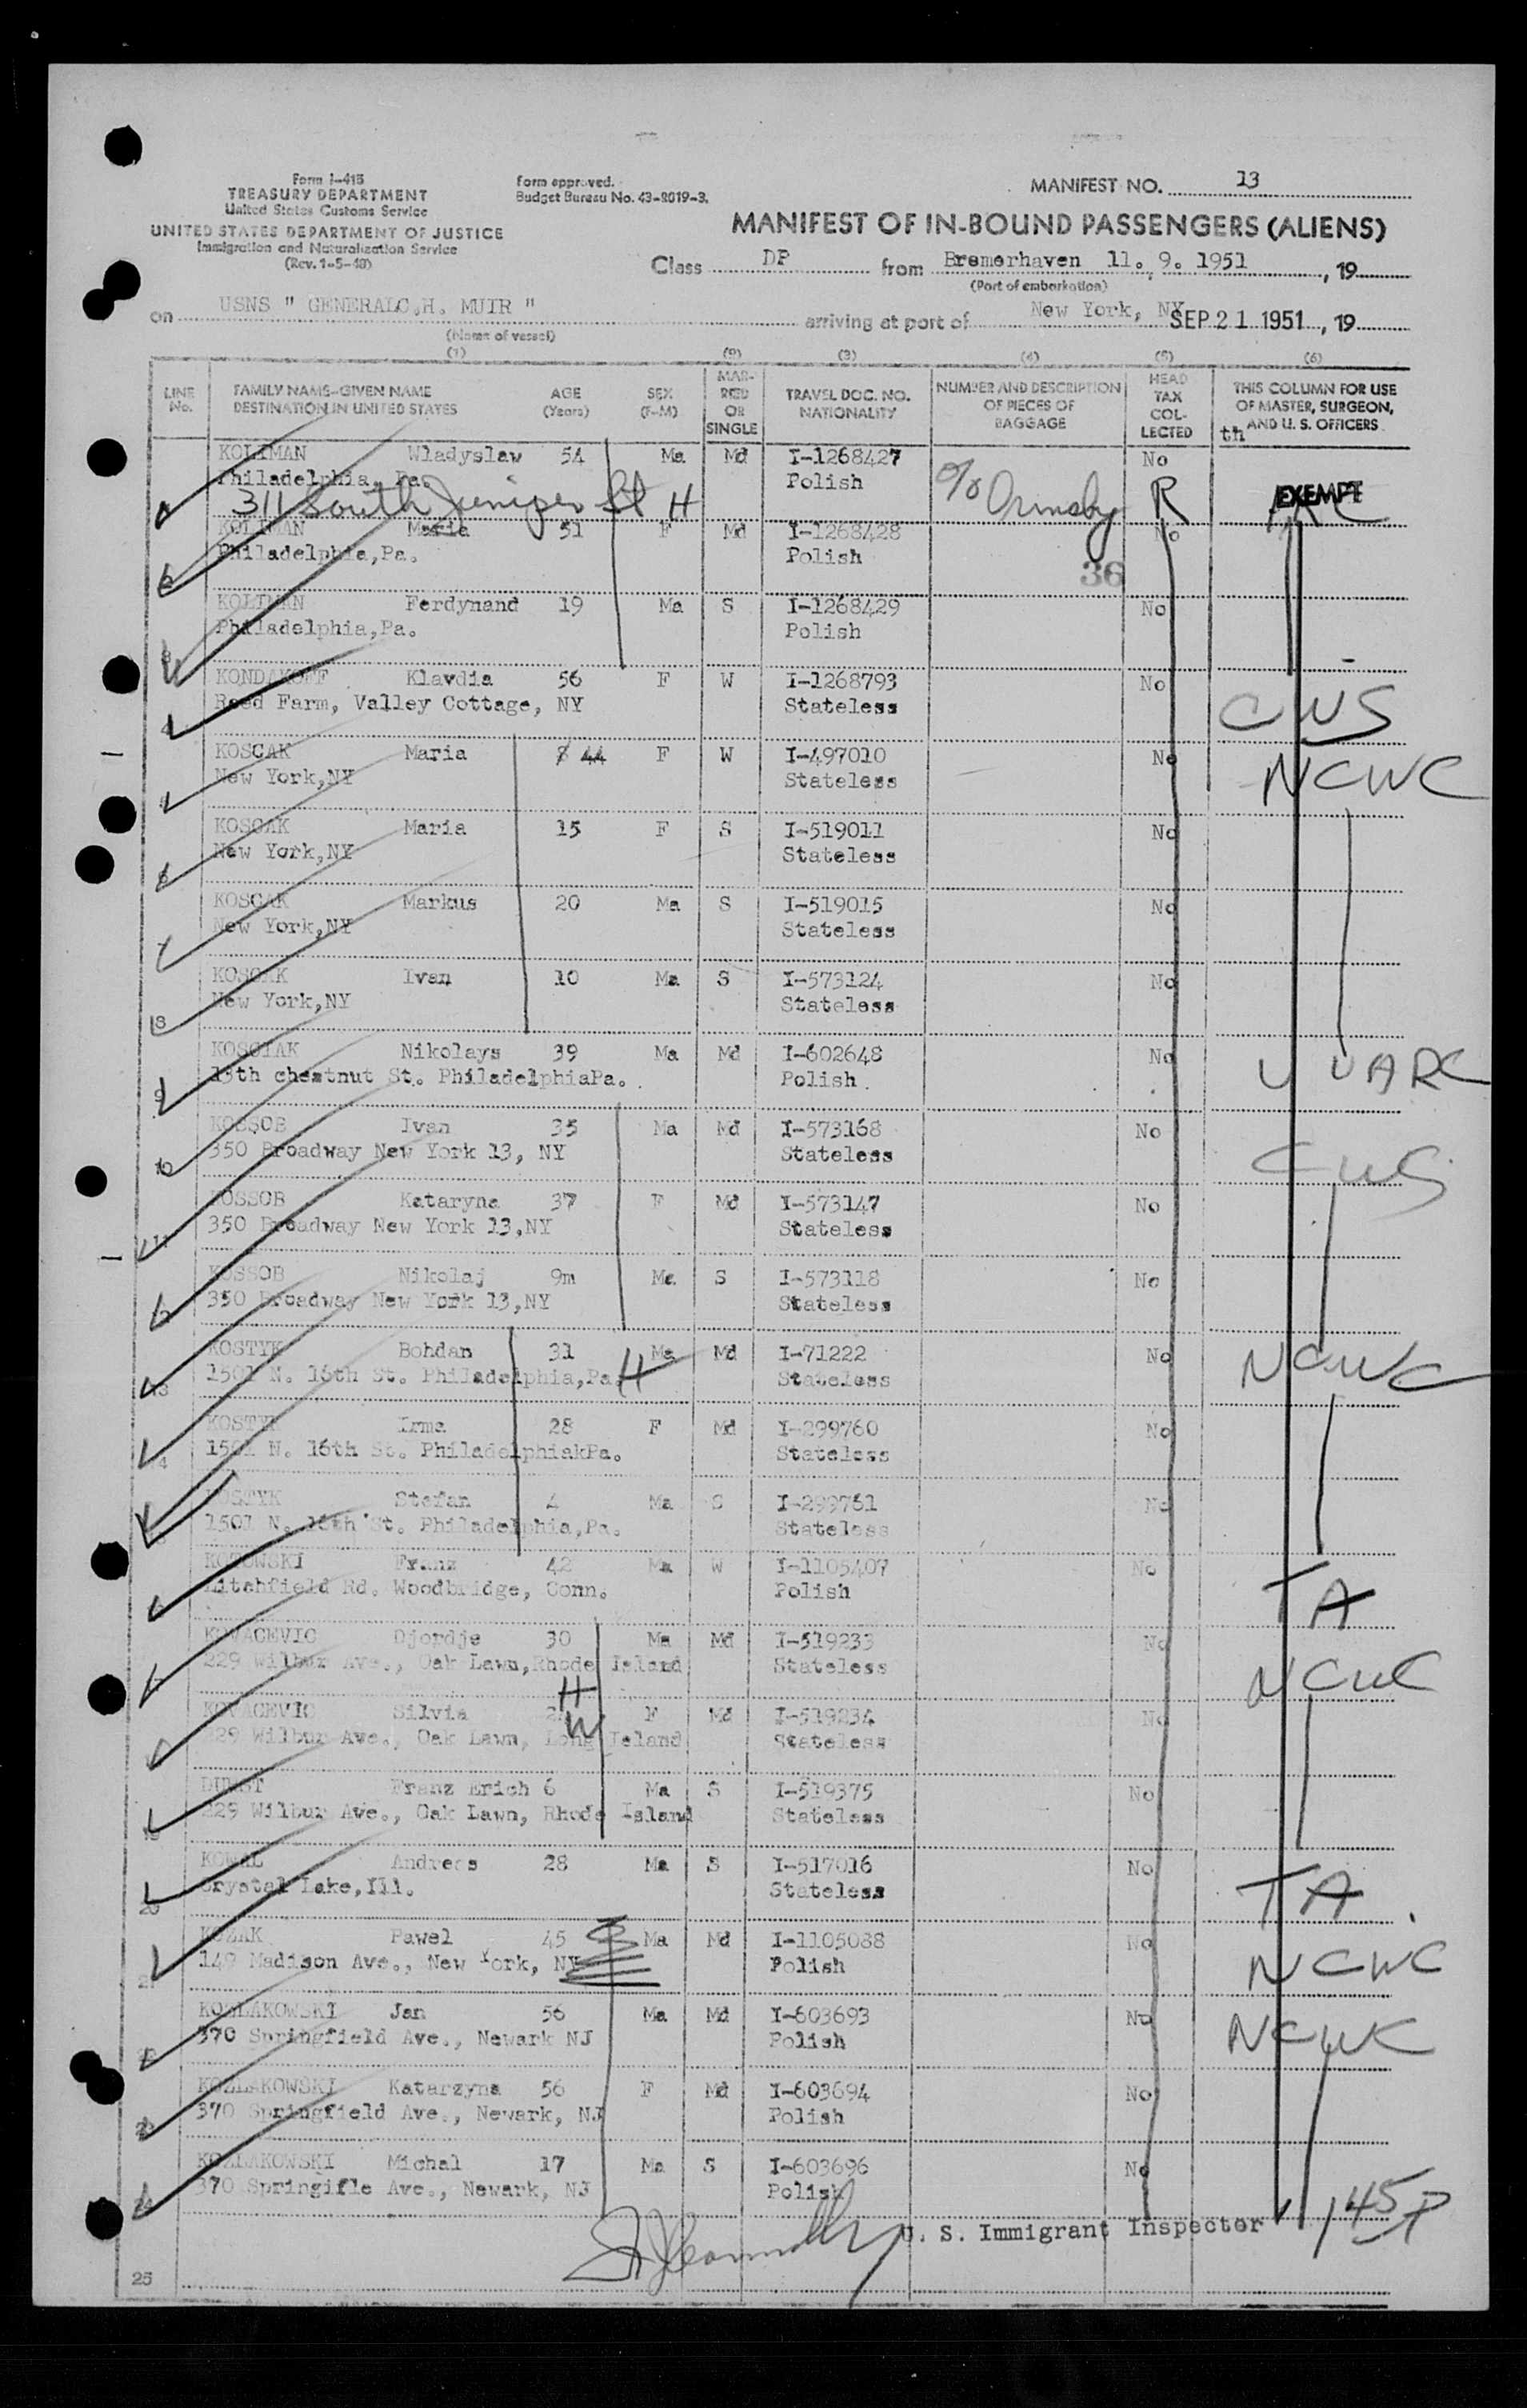 Form I-415
TREASURY DEPARTMENT
United States Customs Service
UNITED STATES DEPARTMENT OF JUSTICE
Immigration and Naturalization Service
(Rev. 1-5-48)
Form approved.
Budget Bureau No. 43-R019-3.
MANIFEST NO. 13
MANIFEST OF IN-BOUND PASSENGERS (ALIENS)
Class DP from Bremerhaven 11. 9. 1951, 19
(Port of embarkation)
on USNS " GENERALC.H. MUIR " arriving at port of New York, NY SEP 21 1951, 19
(Name of vessel)
(1) (2) (3) (4) (5) (6)
LINE No. FAMILY NAME-GIVEN NAME DESTINATION IN UNITED STATES AGE (Years) SEX (F-M) MARRIED OR SINGLE TRAVEL DOC. NO. NATIONALITY NUMBER AND DESCRIPTION OF PIECES OF BAGGAGE HEAD TAX COLLECTED THIS COLUMN FOR USE OF MASTER, SURGEON, AND U. S. OFFICERS
th
KOLTMAN Wladyslaw 54 Ma Md I-1268427 No
Philadelphia, Pa. Polish
311 South Juniper St H % Ormsby R EXEMPT
KOLTMAN Maria 51 F Md I-1268428 No
Philadelphia,Pa. Polish
36
KOLTMAN Ferdynand 19 Ma S I-1268429 No
Philadelphia,Pa. Polish
KONDAKOFF Klavdia 56 F W I-1268793 No
Reed Farm, Valley Cottage, NY Stateless CWS
KOSCAK Maria 44 F W I-497010 No
New York,NY Stateless NCWC
KOSCAK Maria 15 F S I-519011 No
New York,NY Stateless
KOSCAK Markus 20 Ma S I-519015 No
New York,NY Stateless
KOSCAK Ivan 10 Ma S I-573124 No
New York,NY Stateless
8
KOSCIAK Nikolays 39 Ma Md I-602648 No
13th chestnut St. PhiladelphiaPa. Polish UUARC
9
KOSSOB Ivan 35 Ma Md I-573168 No
350 Broadway New York 13, NY Stateless CWS
10
KOSSOB Kataryna 37 F Md I-573147 No
350 Broadway New York 13,NY Stateless
11
KOSSOB Nikolaj 9m Ma S I-573118 No
350 Broadway New York 13,NY Stateless
KOSTYK Bohdan 31 Ma Md I-71222 No
1501 N. 16th St. Philadelphia,Pa. H Stateless NCWC
13
KOSTYK Irma 28 F Md I-299760 No
1501 N. 16th St. PhiladelphiakPa. Stateless
KOSTYK Stefan 4 Ma S I-299761 No
1501 N. 16th St. Philadelphia,Pa. Stateless
KOTOWSKI Franz 42 Ma W I-1105407 No
Litchfield Rd. Woodbridge, Conn. Polish TA
KOVACEVIC Djordje 30 Ma Md I-519233 No
229 Wilbur Ave., Oak Lawn,Rhode Island Stateless NCWC
H
KOVACEVIC Silvia F Md I-519234 No
W
229 Wilbur Ave., Oak Lawn, Long Island Stateless
DURST Franz Erich 6 Ma S I-519375 No
229 Wilbur Ave., Oak Lawn, Rhode Island Stateless
19
KOWAL Andreas 28 Ma S I-517016 No
Crystal Lake,Ill. Stateless TA
20
KOZAK Pawel 45 Ma Md I-1105088 No
149 Madison Ave., New York, NY Polish NCWC
21
KOZLAKOWSKI Jan 56 Ma Md I-603693 No
370 Springfield Ave., Newark NJ Polish NCWC
KOZLAKOWSKI Katarzyna 56 F Md I-603694 No
370 Springfield Ave., Newark, NJ Polish
23
KOZLAKOWSKI Michal 17 Ma S I-603696 No
370 Springifle Ave., Newark, NJ Polish
24
145P
U. S. Immigrant Inspector
25